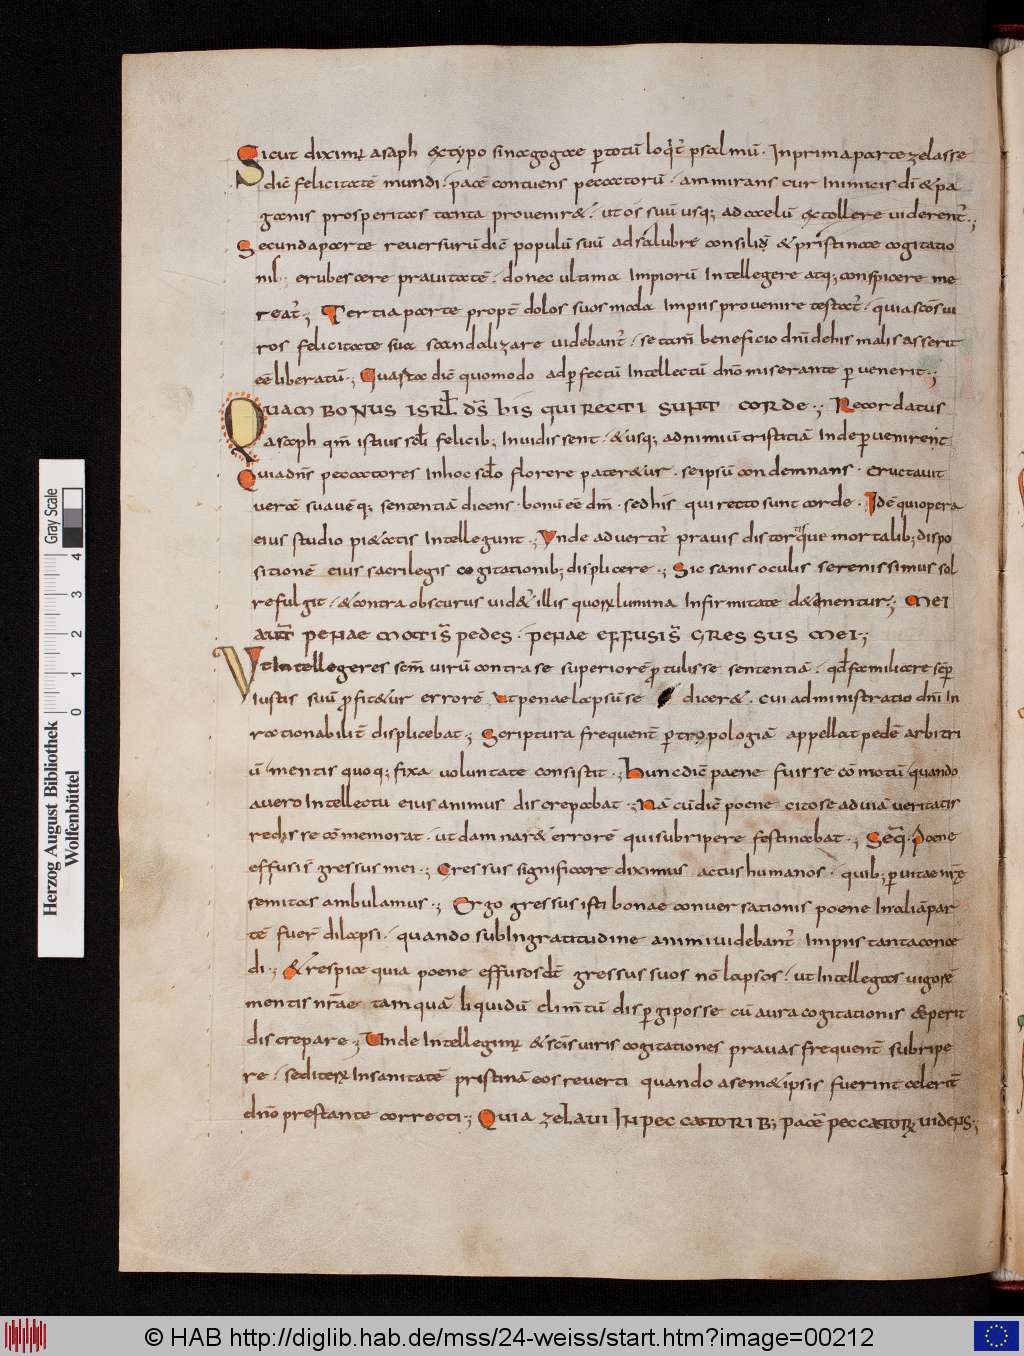 Sicut diximꝰ asaph & typo sinagogae ꝑ totū loqͥt̄ psalmū · In prima parte zelasse
dic̄ felicitatē mundi · pacē contuens peccatorū · ammirans cur Inimicis dī & pa
ganis prosperitas tanta provenir& · ut os suū usq; ad caelū extollere viderent̄ ·;
Secunda parte reversurū dic̄ populū suū ad salubrē consiliū & pristinae cogitatio
nib; erubescere pravitatē · donec ultima Impiorū Intellegere atq; conspicere me
reat̄ ·; Tertia parte propt̄ dolos suos mala Impiis provenire testat̄ · quia scōs vi
ros felicitate sua scandalizare videbant̄ · se tam̄ beneficio dn̄i de his malis asserit
eē liberatū ·; Quarta dic̄ quomodo ad ꝑfectū Intellectū dn̄o miserante ꝑvenerit ·;
QUAM BONUS ISRL̄ D̄S HIS QUI RECTI SUNT CORDE ·; Recordatus
asaph qm̄ istius scl̄i felicib; Invidissent · & usq; ad nimiū tristitiā Inde ꝑvenirent
Quia dn̄s peccatores In hoc sclo florere pater&ur · se ipsū condemnans · eructavit
veracē suavēq; sententiā dicens · bonū eē dm̄ · sed his qui recto sunt corde · Idē qui opera
eius studio pi&atis Intellegunt ·; Unde advertit̄ pravis distortisque mortalib; dispo
sitionē eius sacrilegis cogitationib; displicere ·; Sic sanis oculis serenissimus sol
refulgit · & contra obscurus vid&̄ illis quorū lumina Infirmitate d&inentur ·; MEI
AUT̄ PENAE MOTI S̄ PEDES · PENAE EFFUSI S̄ GRESSUS MEI ·;
Ut Intellegeres scm̄ virū contra se superiorē ꝓtulisse sententiā · qđ familiare semꝑ
iustis suū ꝓfit&ur errorē Ut pene lapsū se dicer& · cui administratio dn̄i In
rationabilit̄ displicebat ·; Scriptura frequent̄ ꝑ tropologiā appellat pedē arbitri
ū mentis quoq; fixa voluntate consistit ·; Hunc dic̄ paene fuisse cōmotū quando
a vero Intellectu eius animus discrepabat ·; Nā cū dic̄ poene cito se ad viā veritatis
rediisse cōmemorat · ut damnar& errorē qui subripere festinabat ·; Seqͥt̄ · Poene
effusi s̄ gressus mei ·; Gressus significare diximus actus humanos · quib; ꝑ vitae nr̄ę
semitas ambulamus ·; Ergo gressus isti bonae conversationis poene In aliā par
tē fuer̄ dilapsi · quando sub Ingratitudine animi videbant̄ Impiis tanta conce
di ·; & respice quia poene effusos dic̄ gressus suos nō lapsos · ut Intellegas vigorē
mentis nr̄ae tamquā liquidū elim̄tū dispergi posse cū a vera cogitationis &perit
discrepare ·; Unde Intellegimꝰ & scīs viris cogitationes pravas frequent̄ subripe
re · sed iterū In sanitatē pristinā eos reverti quando a sem&ipsis fuerint celerit̄
dn̄o prestante correcti ·; QUIA ZELAVI IN PECCATORIB; PACĒ PECCATORŪ VIDENS ·;
Herzog August Bibliothek
Wolfenbüttel
0 1 2 3 4
Gray Scale
© HAB http://diglib.hab.de/mss/24-weiss/start.htm?image=00212